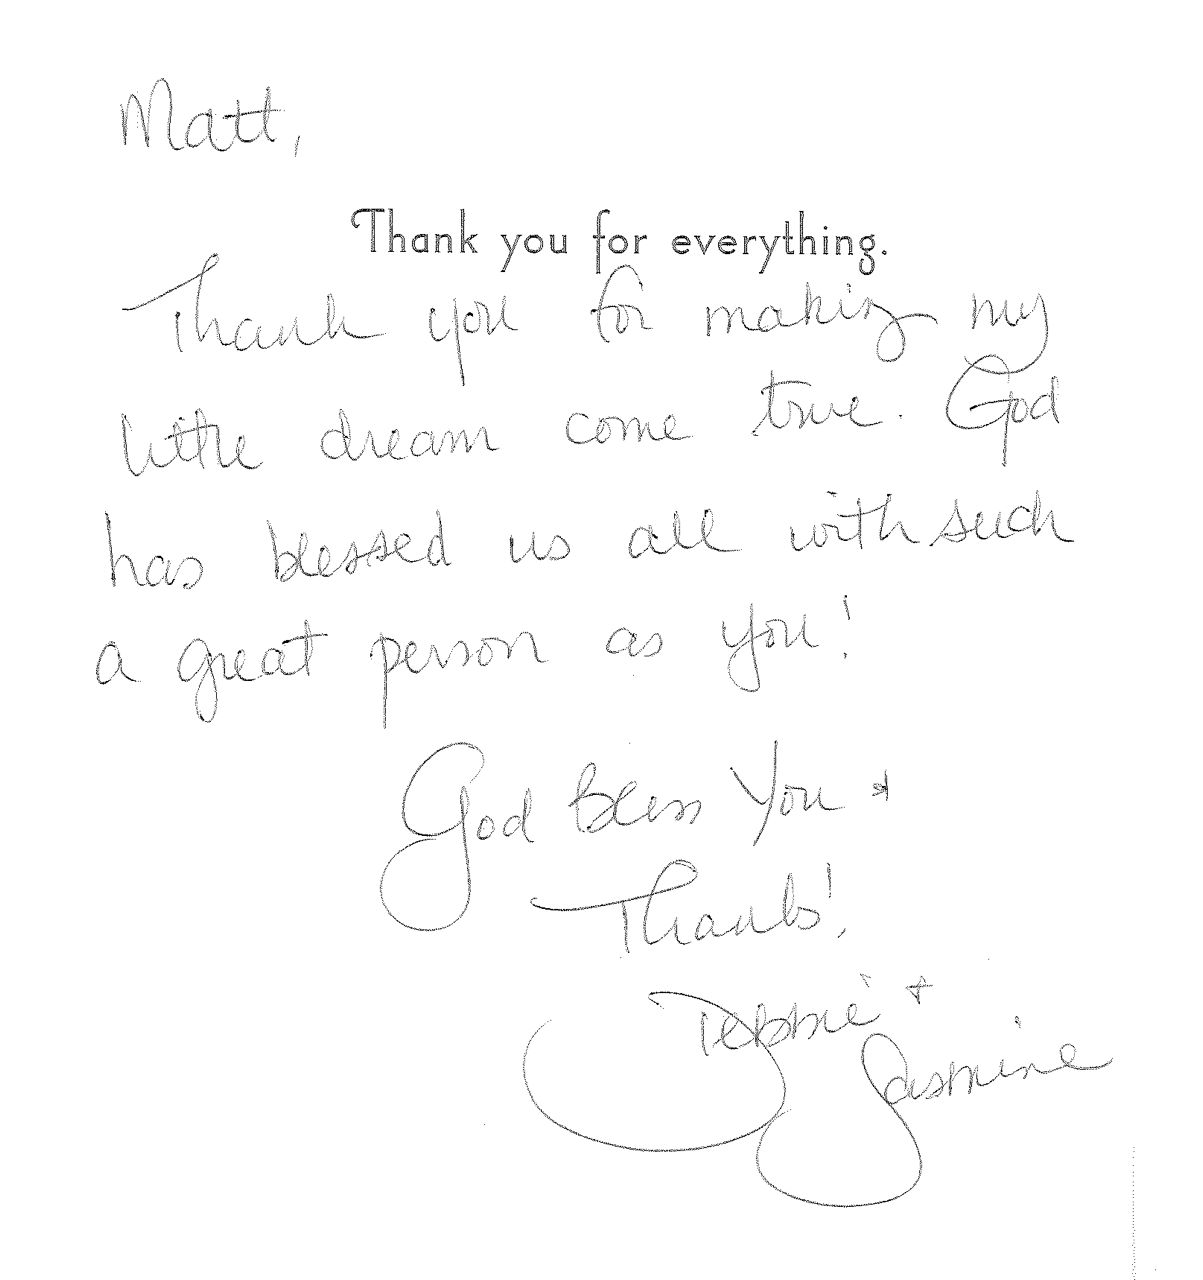 Matt,
Thank you for everything.
Thank you for making my
little dream come true. God
has blessed us all with such
a great person as you!
God Bless You &
Thanks!
Debbie +
Jasmine